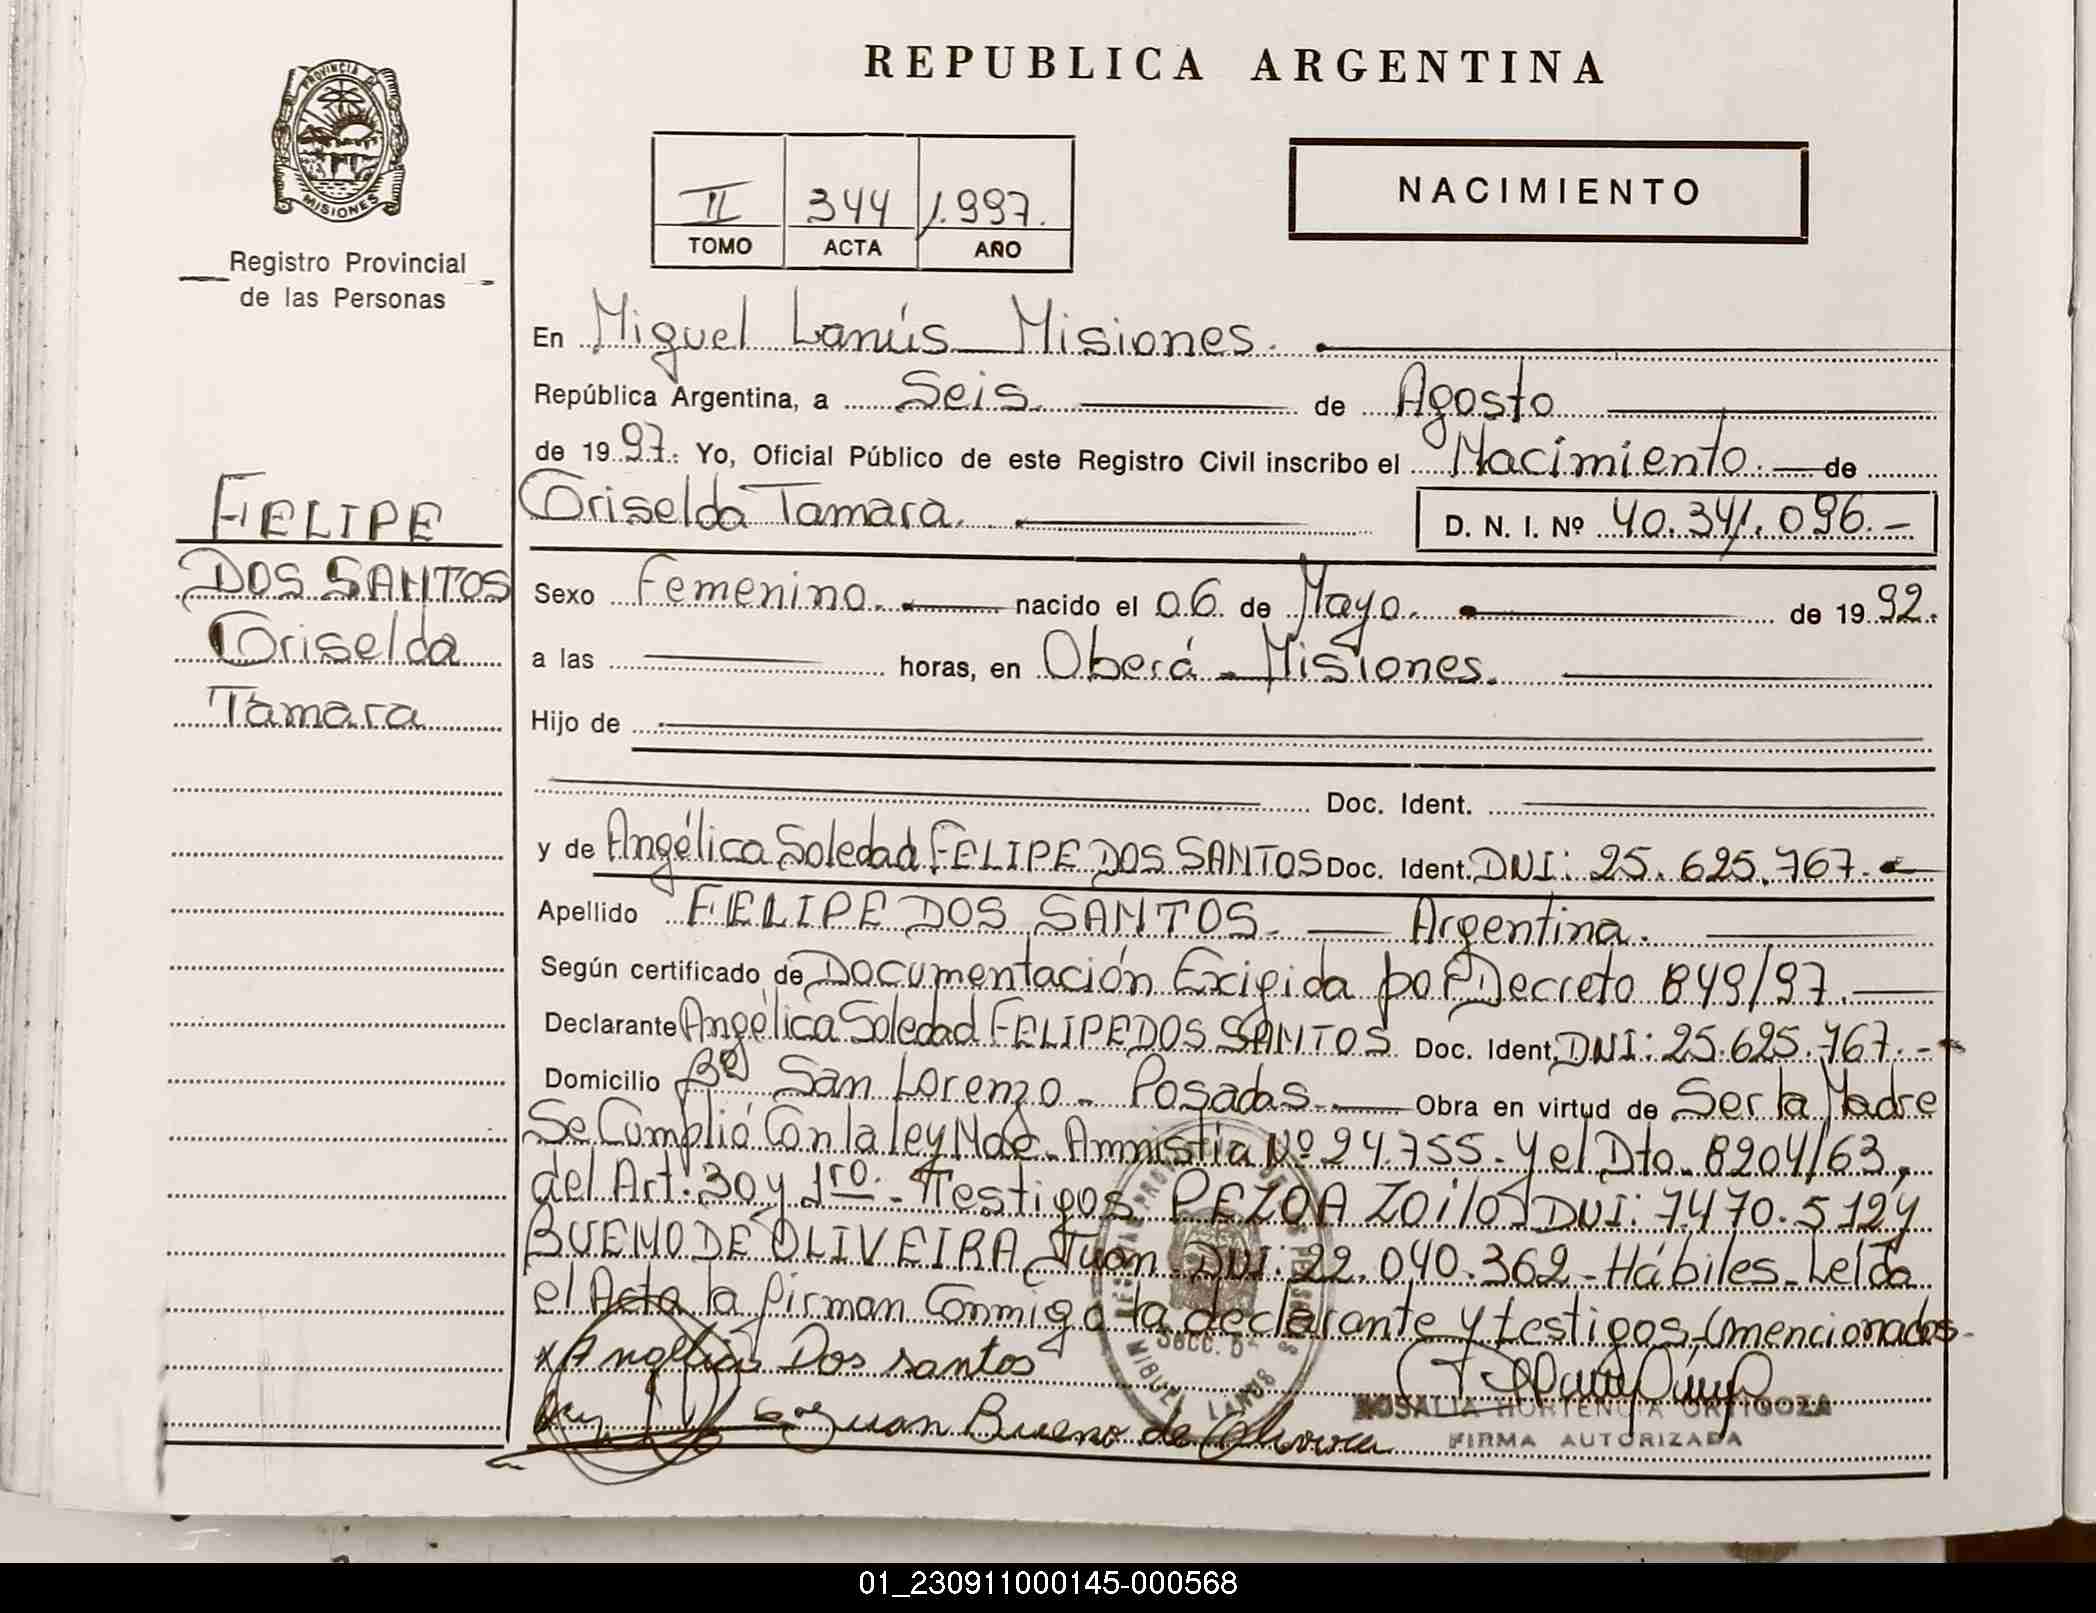 REPUBLICA ARGENTINA
PROVINCIA DE
MISIONES
Registro Provincial
de las Personas
II 344 1.997.
TOMO ACTA AÑO
NACIMIENTO
En Miguel Lanús - Misiones.
República Argentina, a Seis. de Agosto
de 19 97. Yo, Oficial Público de este Registro Civil inscribo el Nacimiento. de
Griselda Tamara. D. N. I. Nº 40.341.096.-
FELIPE
DOS SANTOS
Griselda
Tamara
Sexo Femenino. nacido el 06 de Mayo. de 19 92.
a las horas, en Oberá - Misiones.
Hijo de
Doc. Ident.
y de Angélica Soledad FELIPE DOS SANTOS Doc. Ident. DNI: 25.625.767.-
Apellido FELIPE DOS SANTOS. - Argentina.
Según certificado de Documentación Exigida por Decreto 849/97.
Declarante Angélica Soledad FELIPE DOS SANTOS Doc. Ident. DNI: 25.625.767.-
Domicilio Bº San Lorenzo - Posadas. Obra en virtud de Ser la Madre
Se Cumplió Con la ley Nac. Amnistía Nº 24.755. y el Dto. 8204/63,
del Art: 30 y 1ro. - Testigos PEZOA Zoilo DNI: 7.470.512 y
BUENO DE OLIVEIRA, Juan DNI: 22.040.362 - Hábiles - Leída
el Acta la firman Conmigo la declarante y testigos mencionados.
x Angelica Dos santos
Secc. 
MIGUEL LANUS
Juan Bueno de Olivera
ROSALIA HORTENCIA ORTIGOZA
FIRMA AUTORIZADA
01_230911000145-000568